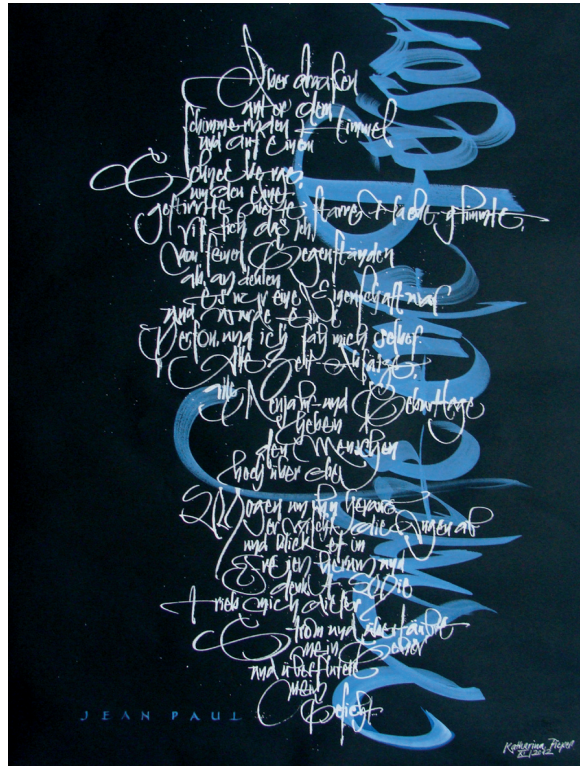 Aber draußen
unter dem
schimmernden Himmel
und auf einem
Schneeberge,
um den eine
gestirnte weiße starre Fläche glimmte,
riß sich das Ich
von seinen Gegenständen
ab, an denen
es nur eine Eigenschaft war
und wurde eine
Person, und ich sah mich selber.
Alle Zeit-Absätze,
alle Neujahr- und Geburttage
heben
den Menschen
hoch über die
Wogen um ihn heraus
er wischt die Augen ab
und blicket im
Freien herum und
denkt: Wie
trieb mich dieser
Strom und übertäubte
mein Gehör
und überflutete
mein
Gesicht
JEAN PAUL
Katharina Pieper
2012